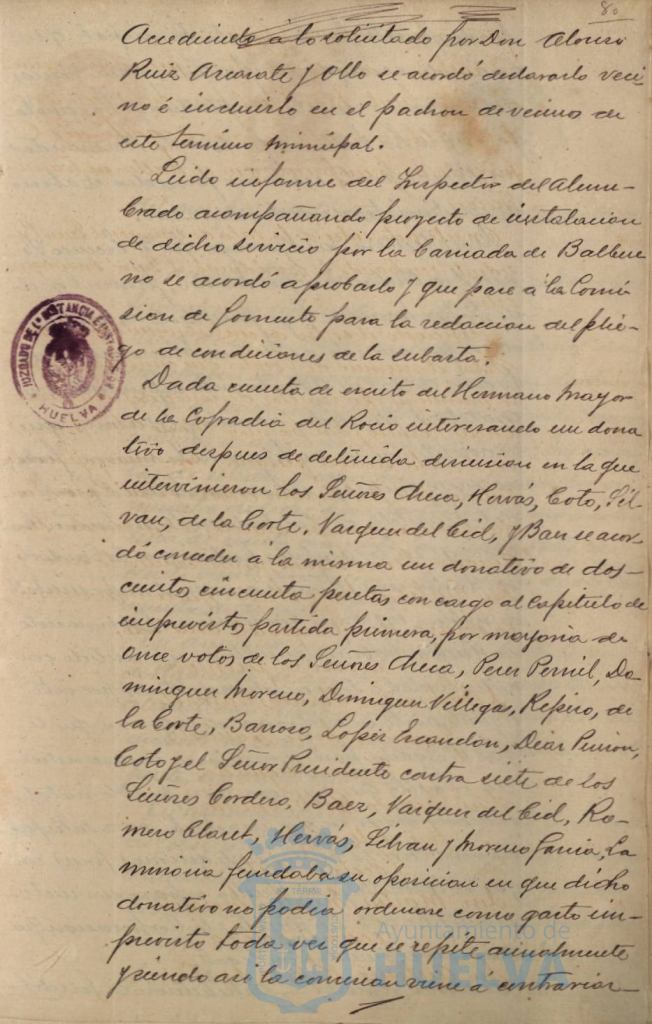 80
Accediendo á lo solicitado por Don Alonso
Ruiz Azcarate y Ollo se acordó declararlo veci-
no é incluirlo en el padron de vecinos de
este termino municipal.
Leido informe del Inspector del Alum-
brado acompañando proyecto de instalacion
de dicho servicio por la barriada de Balbue
no se acordó aprobarlo y que pase á la Comi-
sion de Fomento para la redaccion del plie-
go de condiciones de la subasta.
Dada cuenta de escrito del Hermano Mayor
de la Cofradia del Rocio interesando un dona
tivo despues de detenida discusion en la que
intervinieron los Señores Checa, Hervás, Coto, Sil-
van, de la Corte, Vazquez del Cid, y Baez se acor-
dó conceder á la misma un donativo de dos-
cientos cincuenta pesetas con cargo al Capitulo de
imprevistos partida primera, por mayoria de
once votos de los Señores Checa, Perez Pernil, Do-
minguez Moreno, Dominguez Villegas, Repiso, de
la Corte, Barroso, Lopez Escandon, Diaz Pinzon,
Coto y el Señor Presidente contra siete de los
Señores Cordero, Baez, Vazquez del Cid, Ro-
mero Claret, Hervás, Silvan y Moreno Garcia, La
minoria fundaba su oposicion en que dicho
donativo no podia ordenarse como gasto im-
previsto toda vez que se repite anualmente
y siendo asi la comision viene á contrariar-
JUZGADO DE 1ª INSTANCIA É INSTRUCCION
HUELVA
Ayuntamiento de
HUELVA